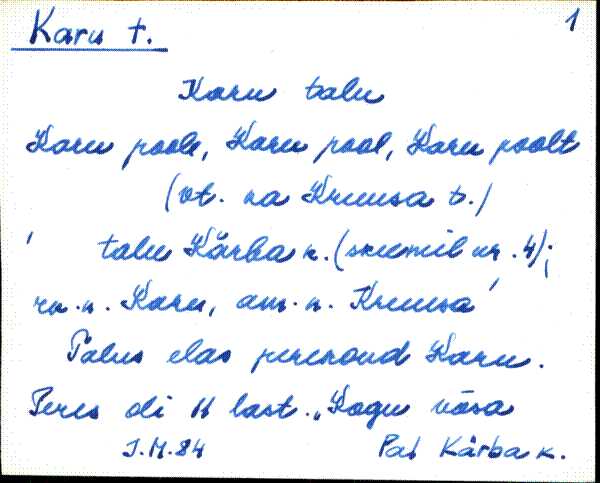 Karu t. 1
Karu talu
Karu poole, Karu pool, Karu poolt
(vt. ka Kruusa t.)
' talu Kärba k. (skeemil nr. 4);
rn.n. Karu, am.n. Kruusa'
Talus elas perekond Karu.
Peres oli 11 last. „Kogu võsa
J.M.84 Pal Kärba k.